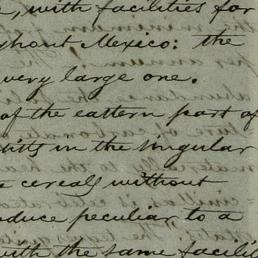 , with facilities for
ghout Mexico: the
very large one.
of the eastern part of
in the singular
cereals without
duce peculiar to a
with the same facilit